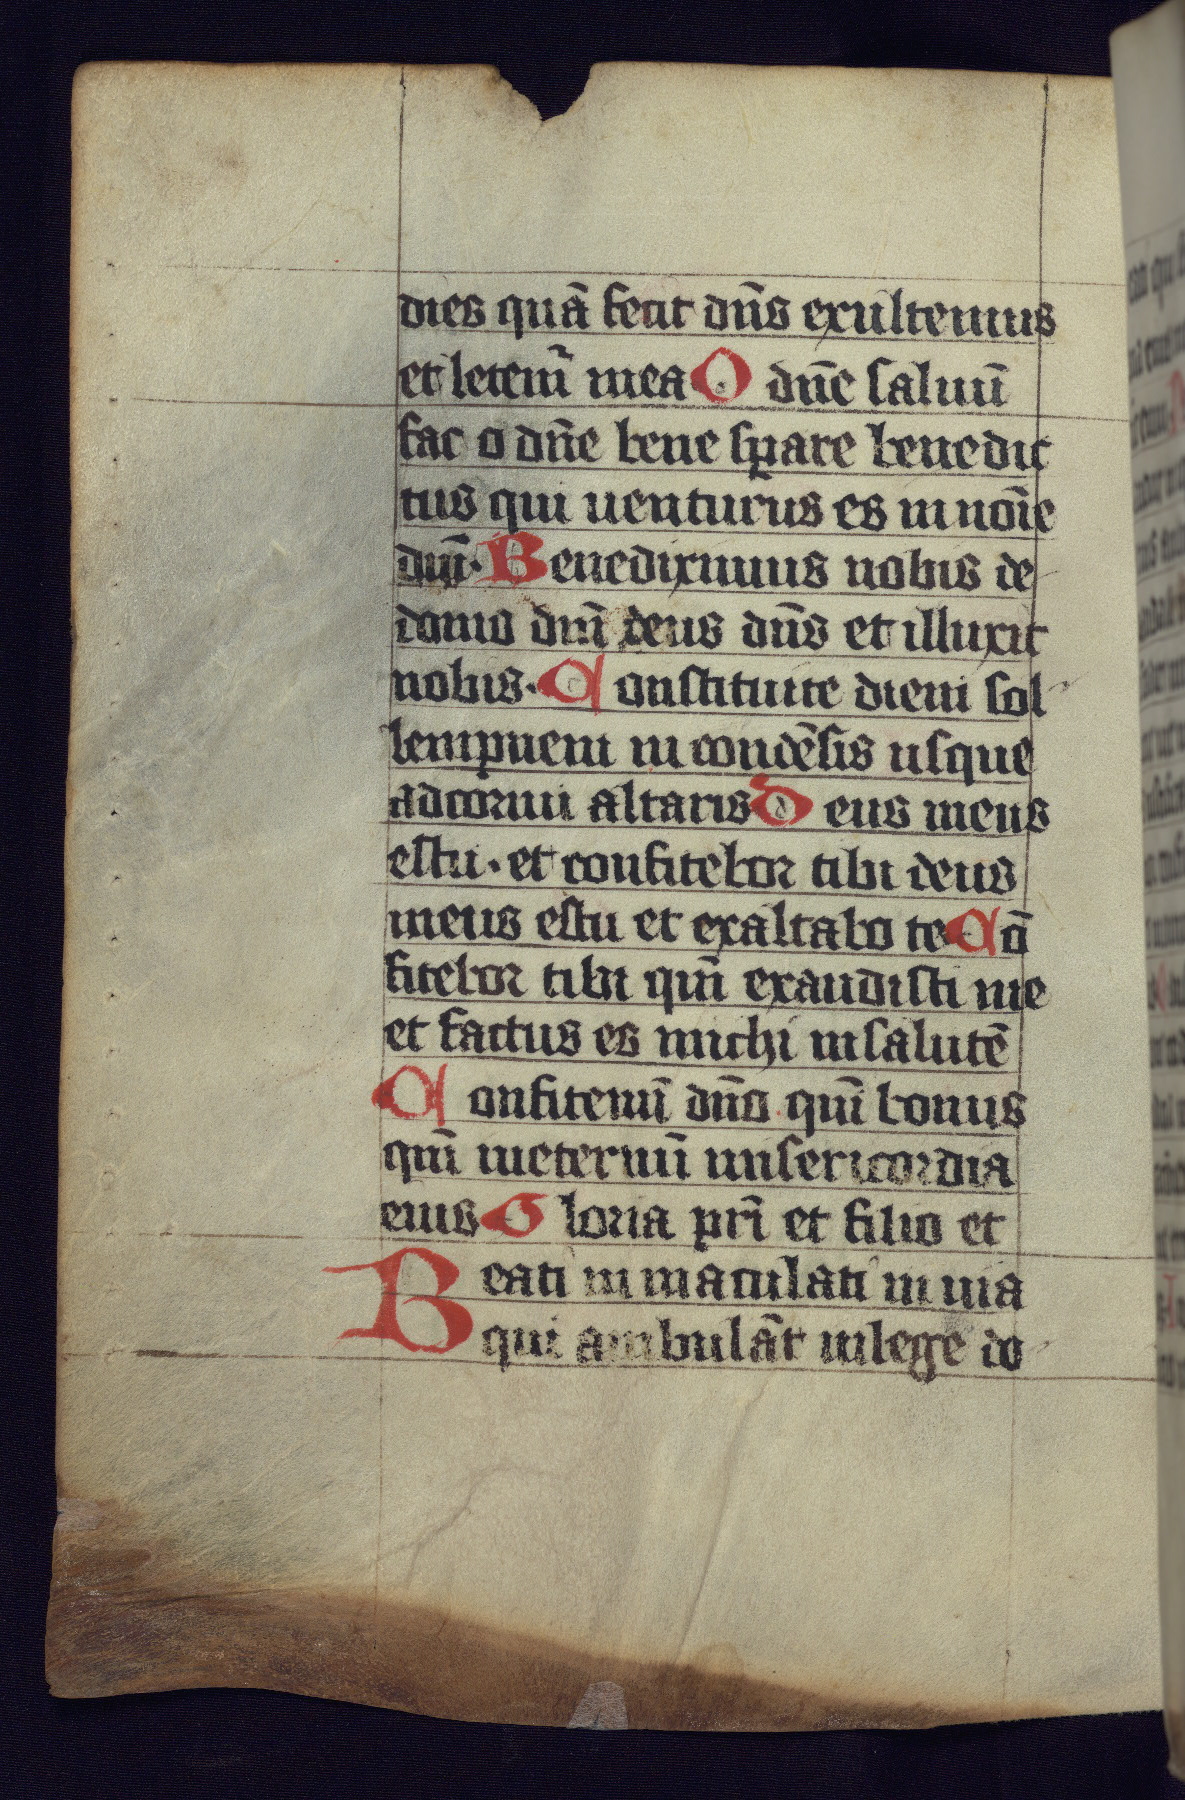 dies quā fecit dn̄s exultemus
et letem̄ mea O dn̄e saluū
fac o dn̄e bene sꝑare benedic
tus qui uenturus es in noīe
dnī. Benediximus uobis de
domo dnī deus dn̄s et illuxit
nobis. Constituite diem sol
lempnem in condēsis usque
adcornu altaris Deus meus
estu. et confitebor tibi deus
meus estu et exaltabo te Cō
fitebor tibi qm̄ exaudisti me
et factus es michi insalutē
Confitemī dn̄o qm̄ bonus
qm̄ ineternū misericordia
eius Gloria pr̄i et filio et
Beati inmaculati in uia
qui ambulāt inlege do